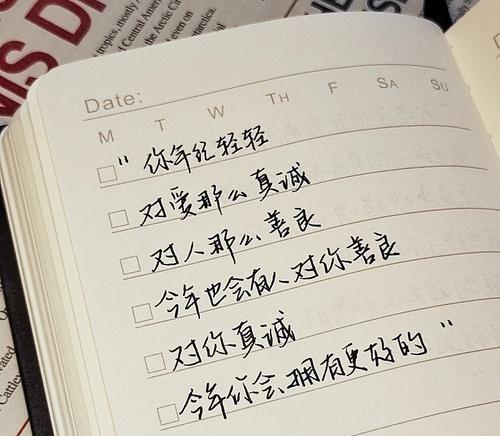 Date:
M T W TH F SA SU
"你年纪轻轻
对爱那么真诚
对人那么善良
今年也会有人对你善良
对你真诚
今年你会拥有更好的"
tropics, mostly
Central Amer
the Arctic Cir
even on